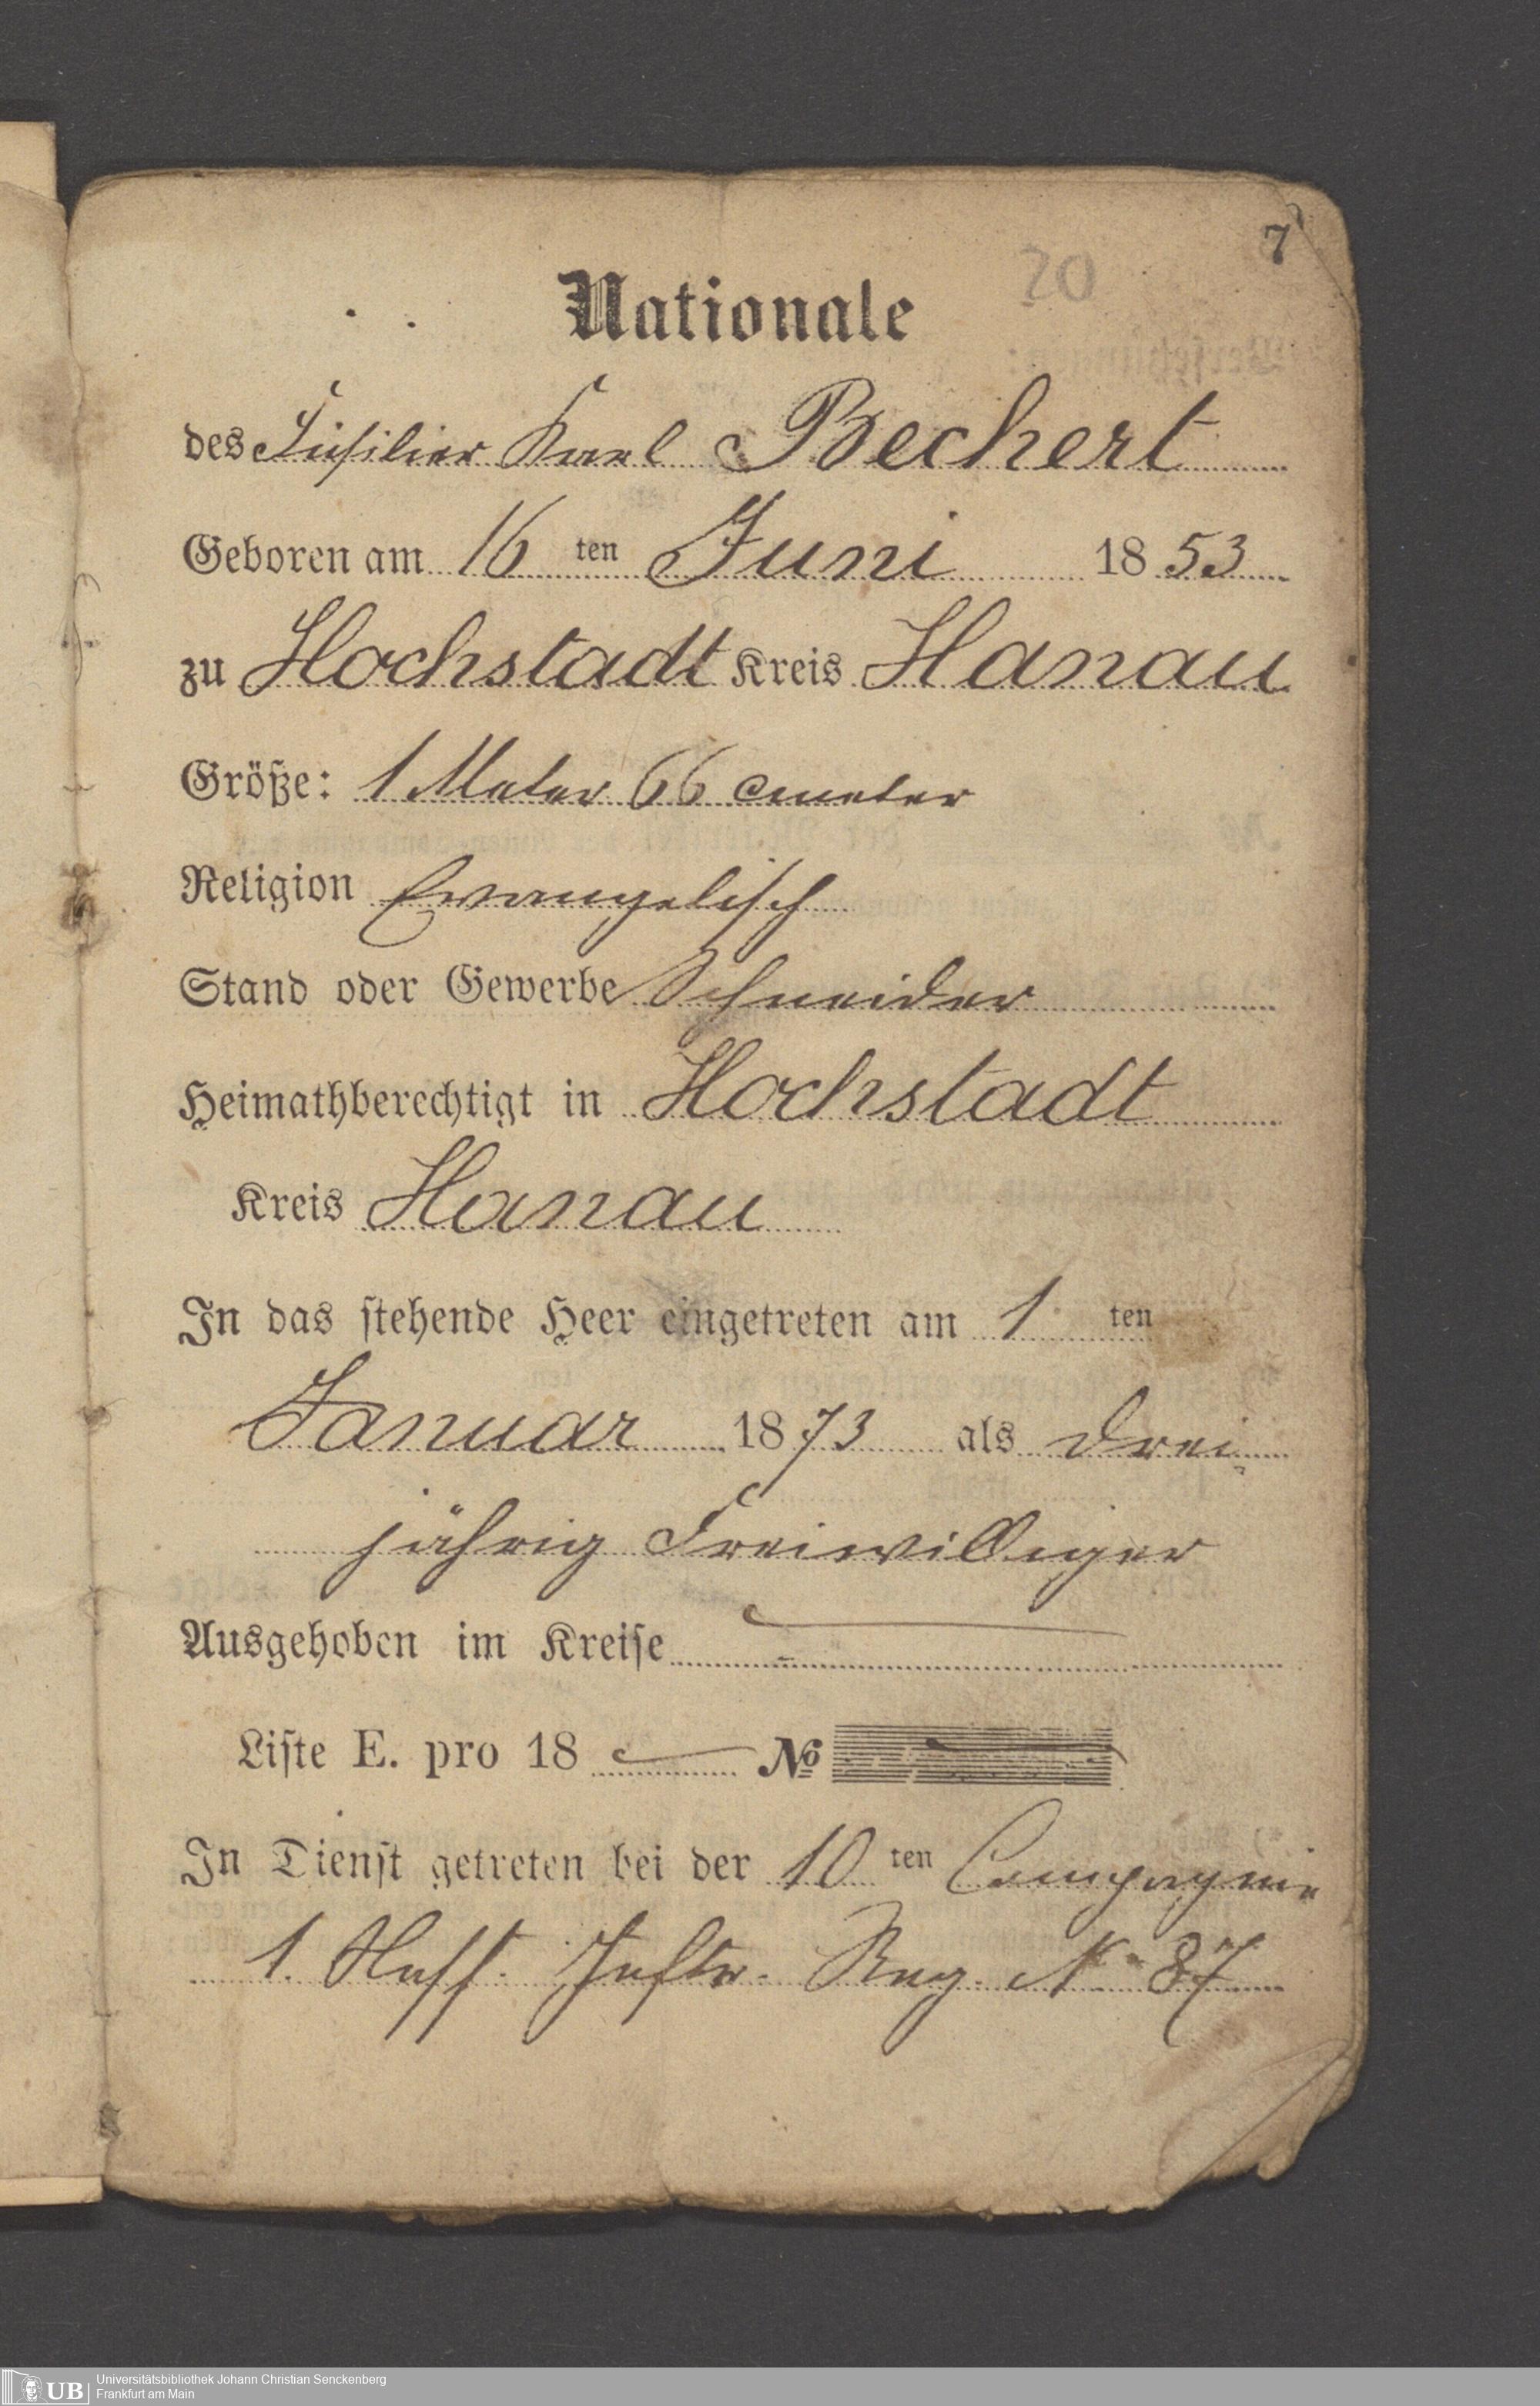 7
20
Nationale
des Füsilier Karl Bechert
Geboren am 16 ten Juni 1853
zu Hochstadt Kreis Hanau
Größe: 1 Meter 66 cmeter
Religion Evangelisch
Stand oder Gewerbe Schneider
Heimathberechtigt in Hochstadt
Kreis Hanau
In das stehende Heer eingetreten am 1 ten
Januar 1873 als Drei
jährig Freiwilliger
Ausgehoben im Kreise
Liste E. pro 18 No
In Dienst getreten bei der 10 ten Compagnie
1. Nass. Inftr. Reg. N 87
UB Universitätsbibliothek Johann Christian Senckenberg
Frankfurt am Main